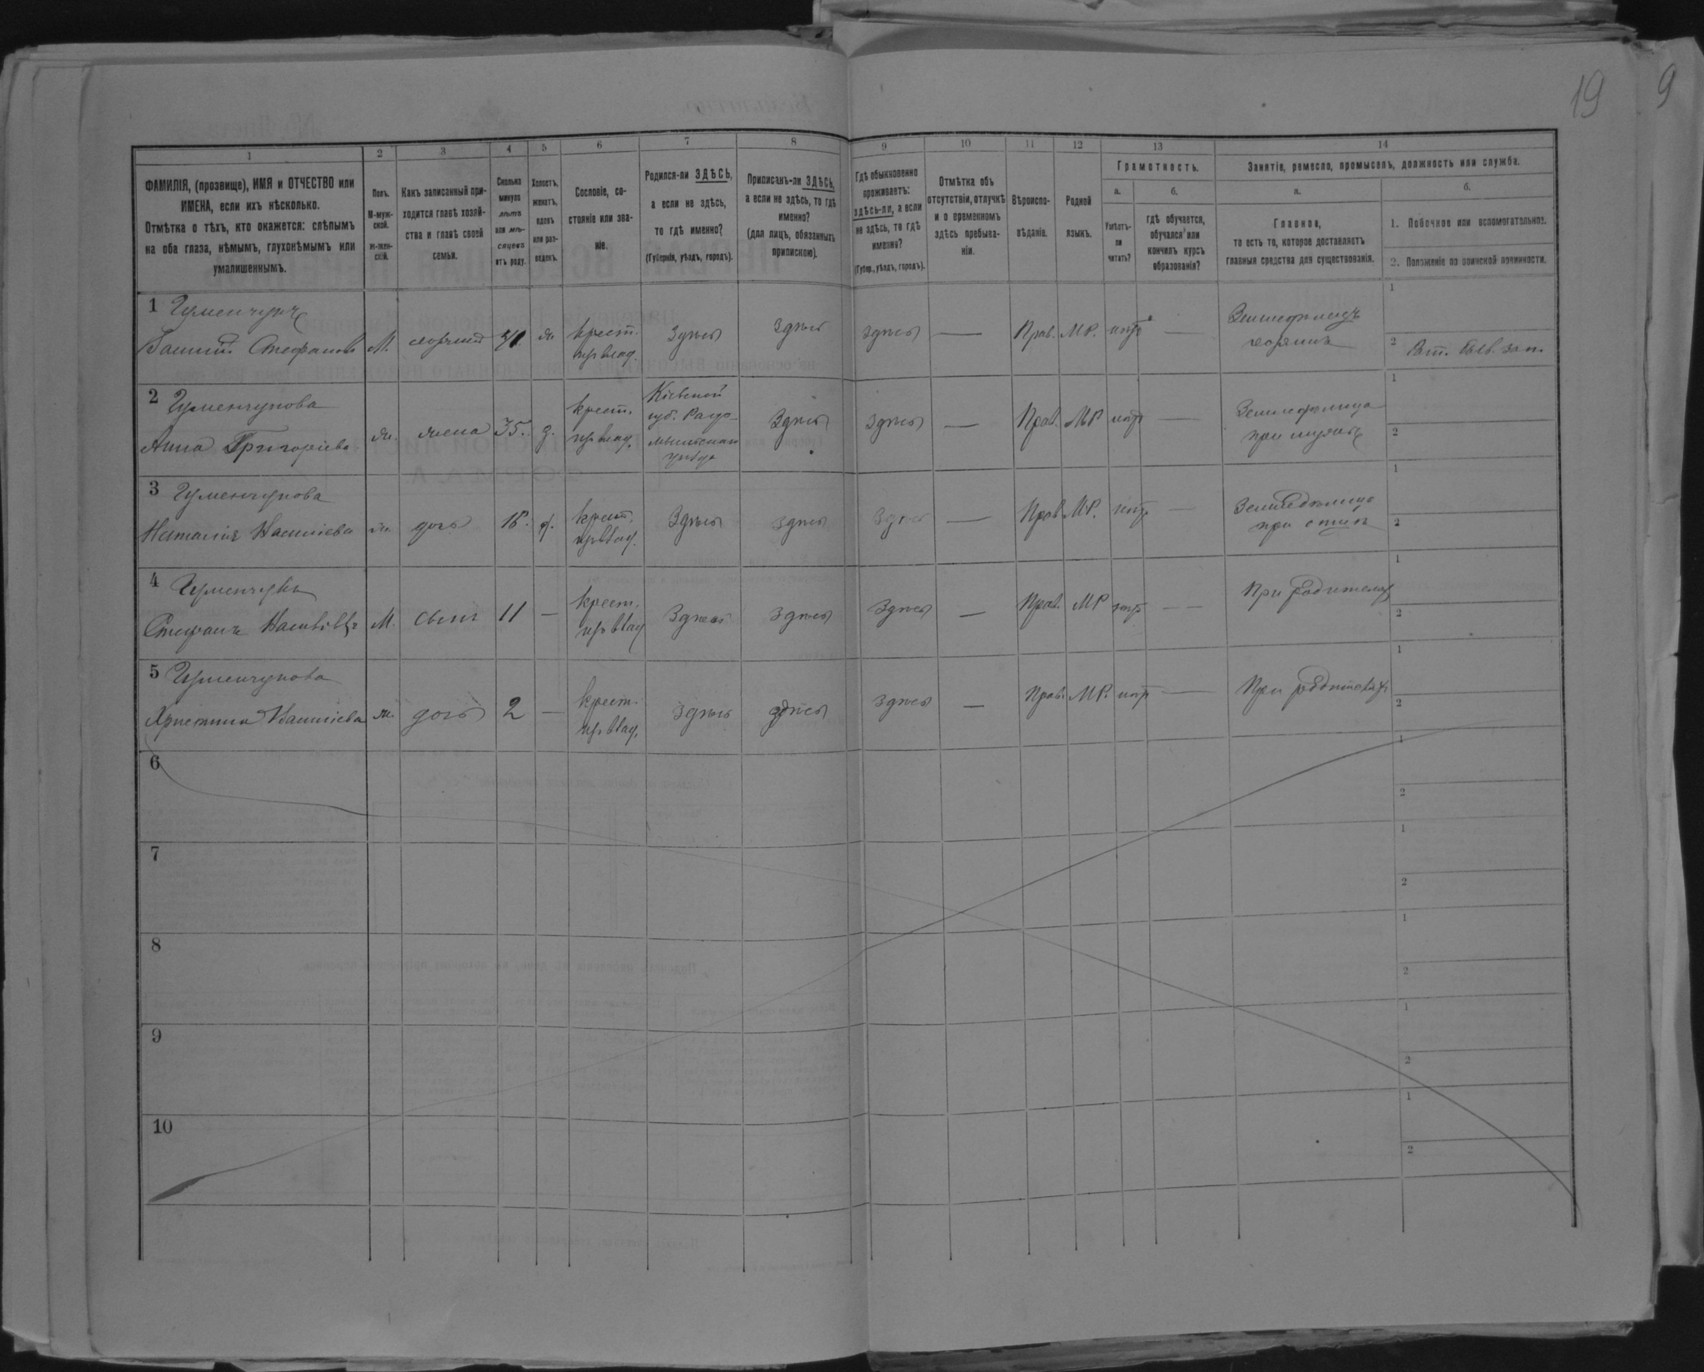 19
9
1
2
3
4
5
6
7
8
9
10
11
12
13
14
ФАМИЛІЯ, (прозвище), ИМЯ и ОТЧЕСТВО или
ИМЕНА, если ихъ нѣсколько.
Отмѣтка о тѣхъ, кто окажется: слѣпымъ
на оба глаза, нѣмымъ, глухонѣмымъ или
умалишеннымъ.
Полъ.
М-муж-
ской.
ж-жен-
скій.
Какъ записанный при-
ходится главѣ хозяй-
ства и главѣ своей
семьи.
Сколько
минуло
лѣтъ
или мѣ-
сяцевъ
отъ роду.
Холостъ,
женатъ,
вдовъ
или раз-
веденъ.
Сословіе, со-
стояніе или зва-
ніе.
Родился-ли ЗДѢСЬ,
а если не здѣсь,
то гдѣ именно?
(Губернія, уѣздъ, городъ).
Приписанъ-ли ЗДѢСЬ,
а если не здѣсь, то гдѣ
именно?
(для лицъ, обязанныхъ
припискою).
Гдѣ обыкновенно
проживаетъ:
здѣсь-ли, а если
не здѣсь, то гдѣ
именно?
(Губер., уѣздъ, городъ).
Отмѣтка объ
отсутствіи, отлучкѣ
и о временномъ
здѣсь пребыва-
ніи.
Вѣроиспо-
вѣданіе.
Родной
языкъ.
Грамотность.
а.
б.
Умѣетъ-
ли
читать?
гдѣ обучается,
обучался или
кончилъ курсъ
образованія?
Занятіе, ремесло, промыселъ, должность или служба.
а.
б.
Главное,
то есть то, которое доставляетъ
главныя средства для существованія.
1. Побочное или вспомогательное.
2. Положеніе по воинской повинности.
1 Гуменчукъ
Василій Стефановъ М. ж. крест. Здѣсь здѣсь здѣсь — Прав. МР. нѣтъ —
хозяинъ
1
2
2 Гуменчукова
Анна Григоріева ж. жена 35. з. крест. Кіевской
губ. Радо-
мысльскаго
уѣзда
Здѣсь здѣсь — Прав. МР нѣтъ —
при мужѣ
1
2
3 Гуменчукова
Наталія Василіева ж. дочь д. крест. Здѣсь здѣсь здѣсь — Прав. МР. нѣтъ —
1
2
4 Гуменчукъ
Стефанъ М. сынъ 11 — крест. Здѣсь здѣсь здѣсь — Прав. МР нѣтъ —
При родителяхъ
1
2
5 Гуменчукова
Христина Василіева ж. дочь 2 — крест. здѣсь здѣсь здѣсь — Прав. МР. нѣтъ —
При родителяхъ
1
2
6
1
2
7
1
2
8
1
2
9
1
2
10
1
2